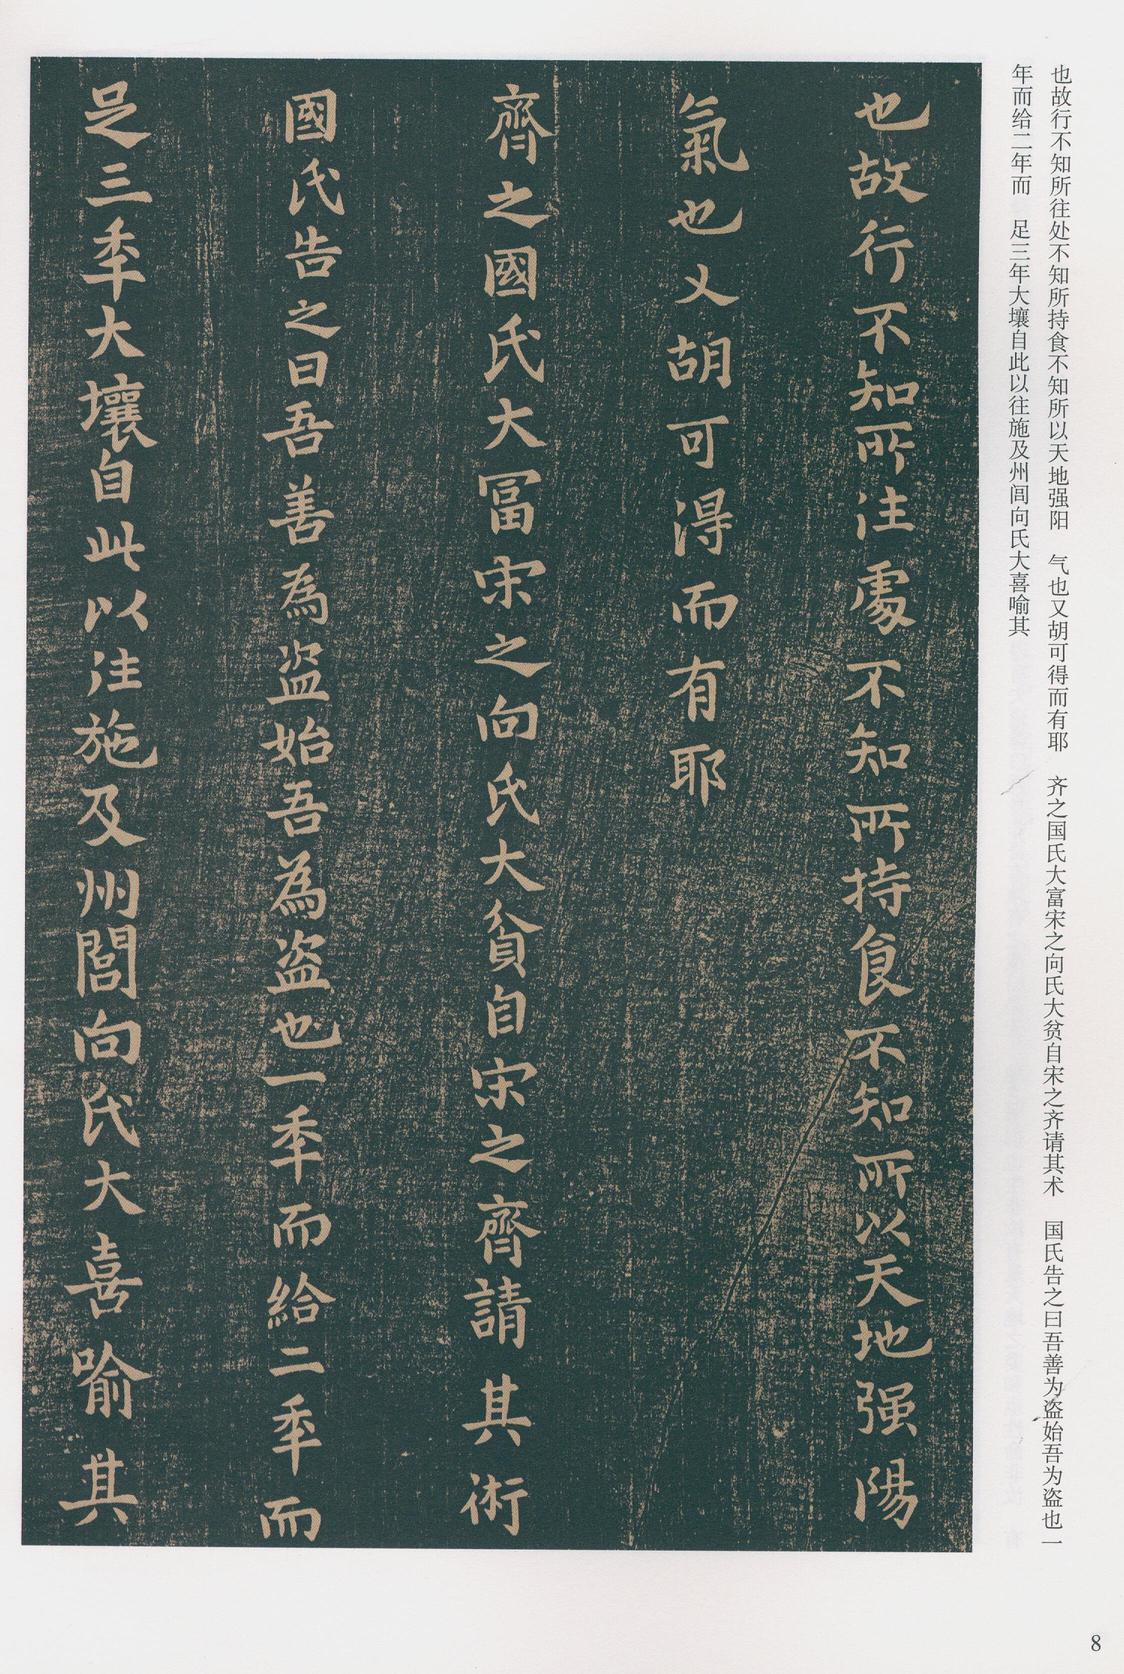 也故行不知所往处不知所持食不知所以天地强阳　气也又胡可得而有耶　齐之国氏大富宋之向氏大贫自宋之齐请其术　国氏告之曰吾善为盗始吾为盗也一
年而给二年而　足三年大壤自此以往施及州闾向氏大喜喻其
也故行不知所往處不知所持食不知所以天地强陽
氣也又胡可得而有耶
齊之國氏大冨宋之向氏大貧自宋之齊請其術
國氏告之曰吾善為盗始吾為盗也一年而給二年而
足三年大壤自此以往施及州閭向氏大喜喻其
8